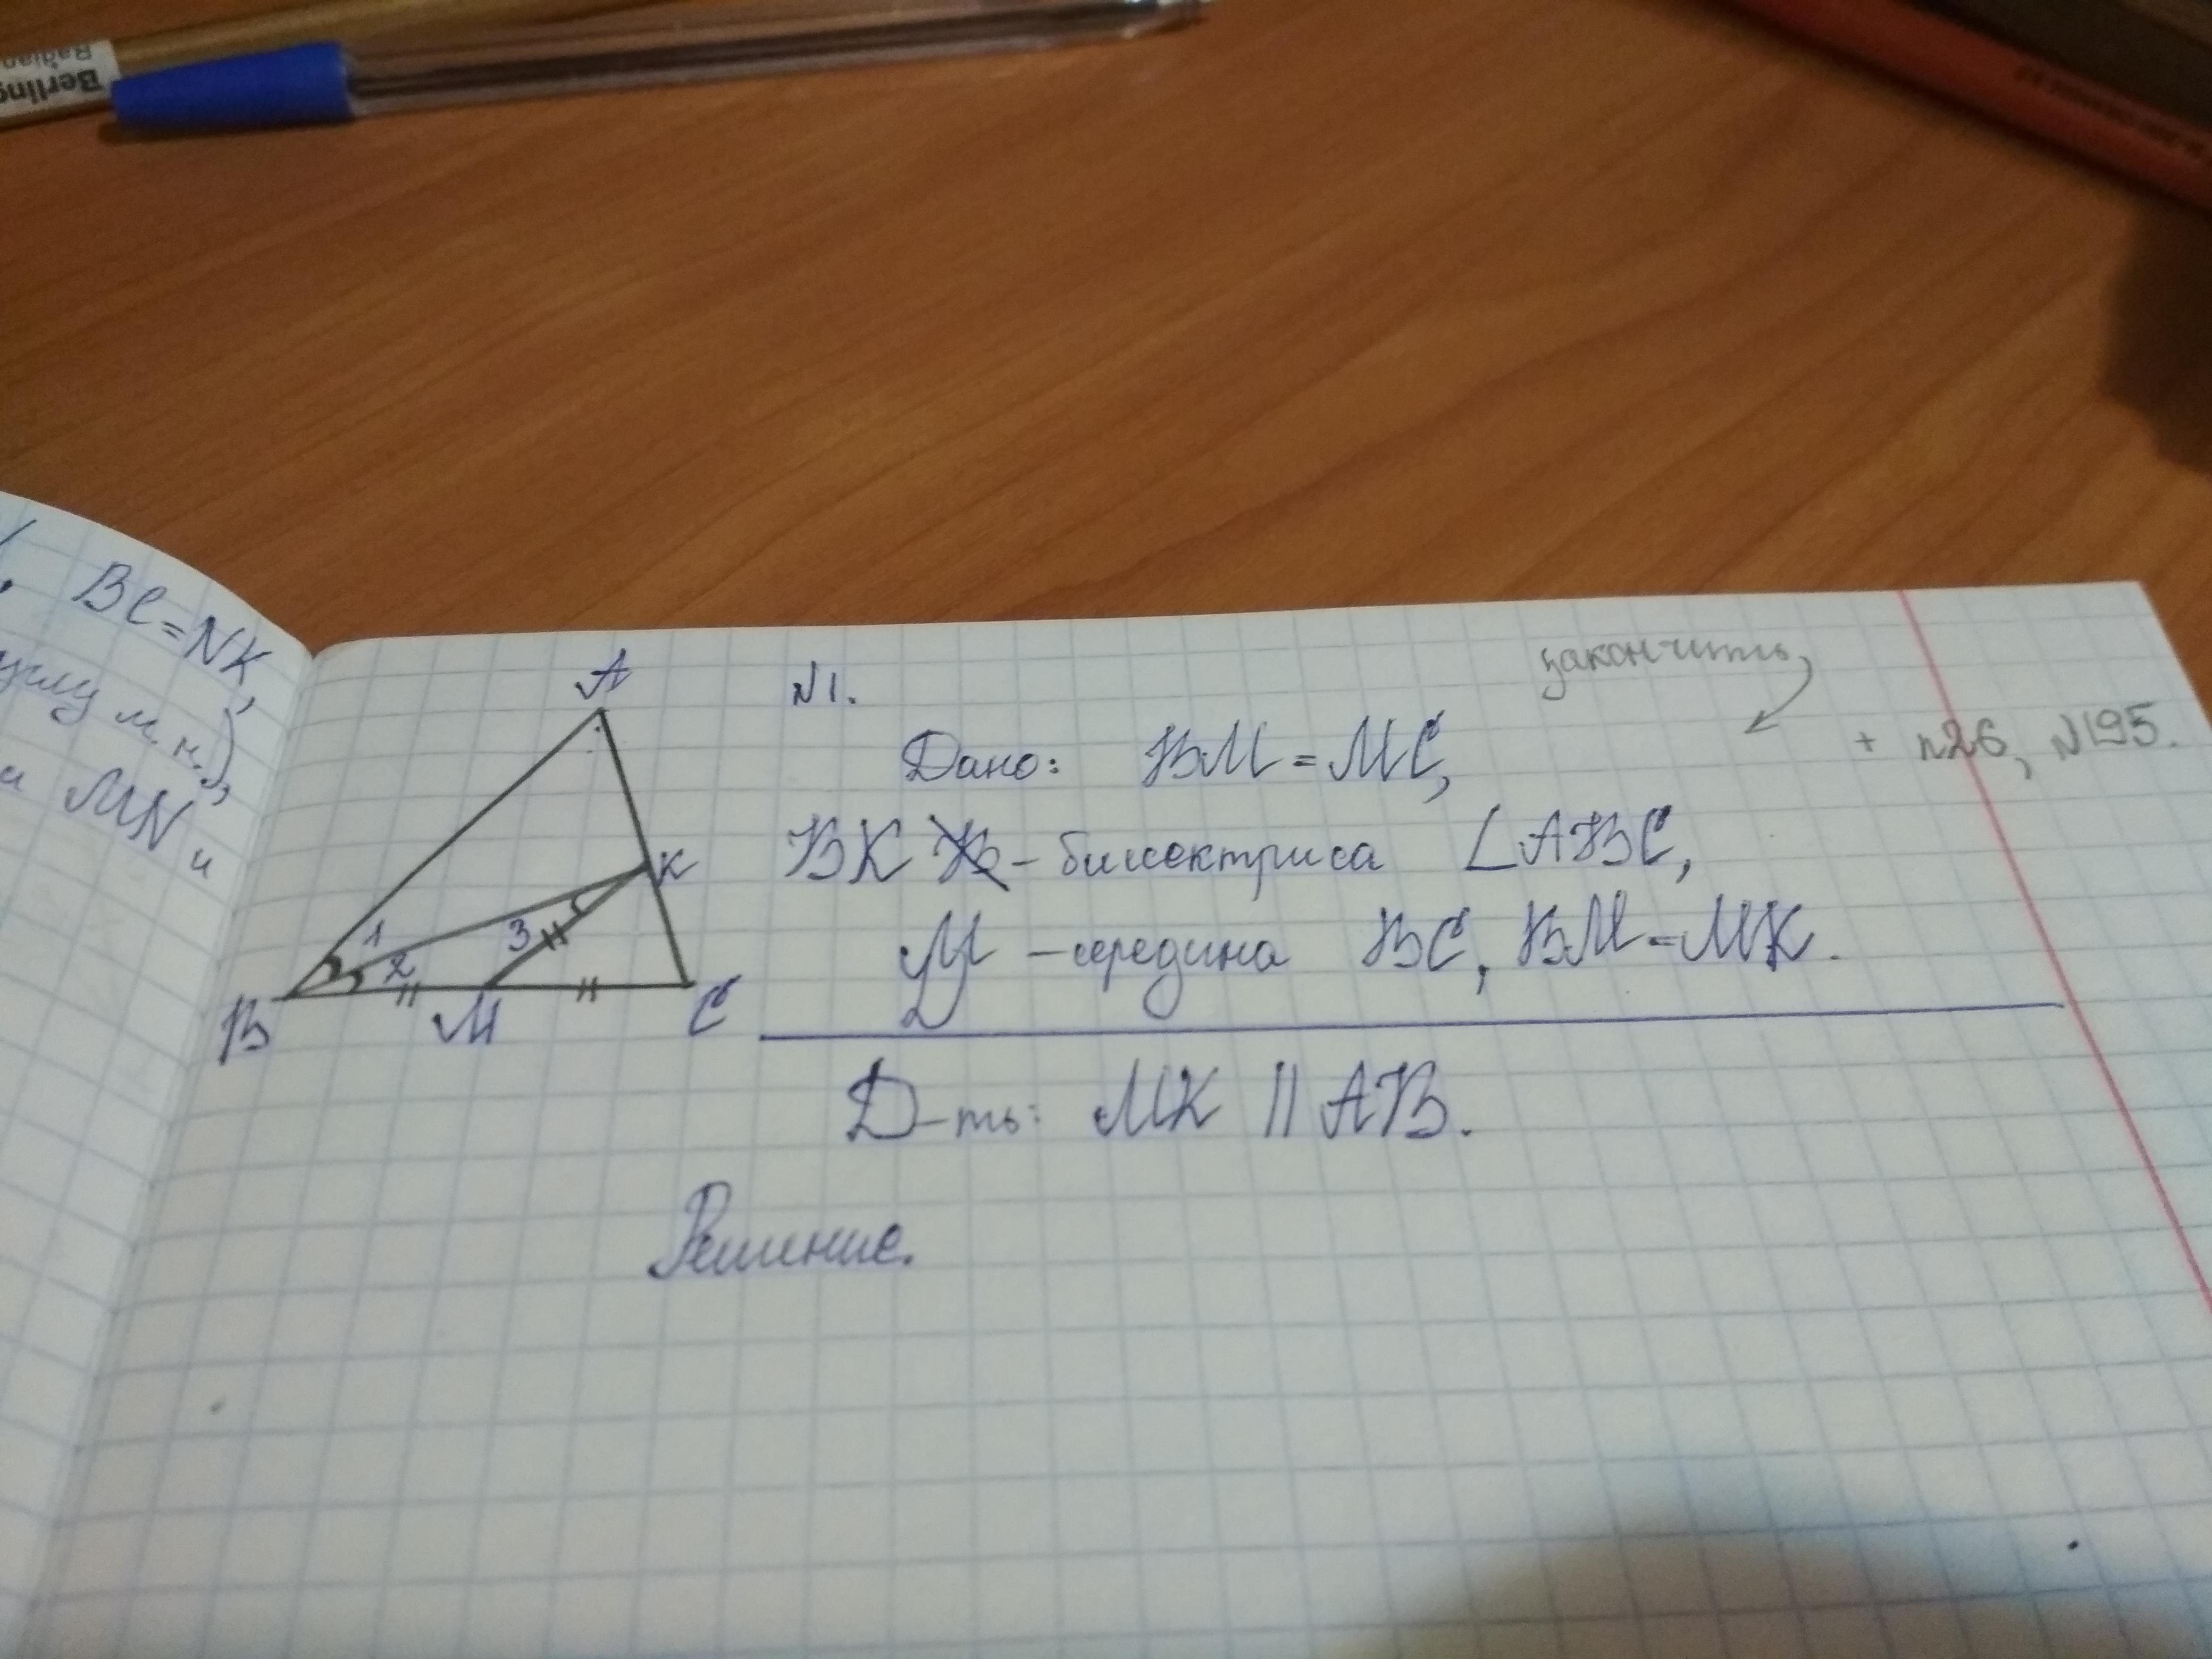 Berling
Radian
. BC = NK,
углу м.н.),
и MN и
закончить
+ п26, №195.
№1.
Дано: BM = MC,
BK - биссектриса ∠ABC,
M - середина BC, BM = MK.
Д-ть: MK || AB.
Решение.
A
K
1
2
3
B
M
C